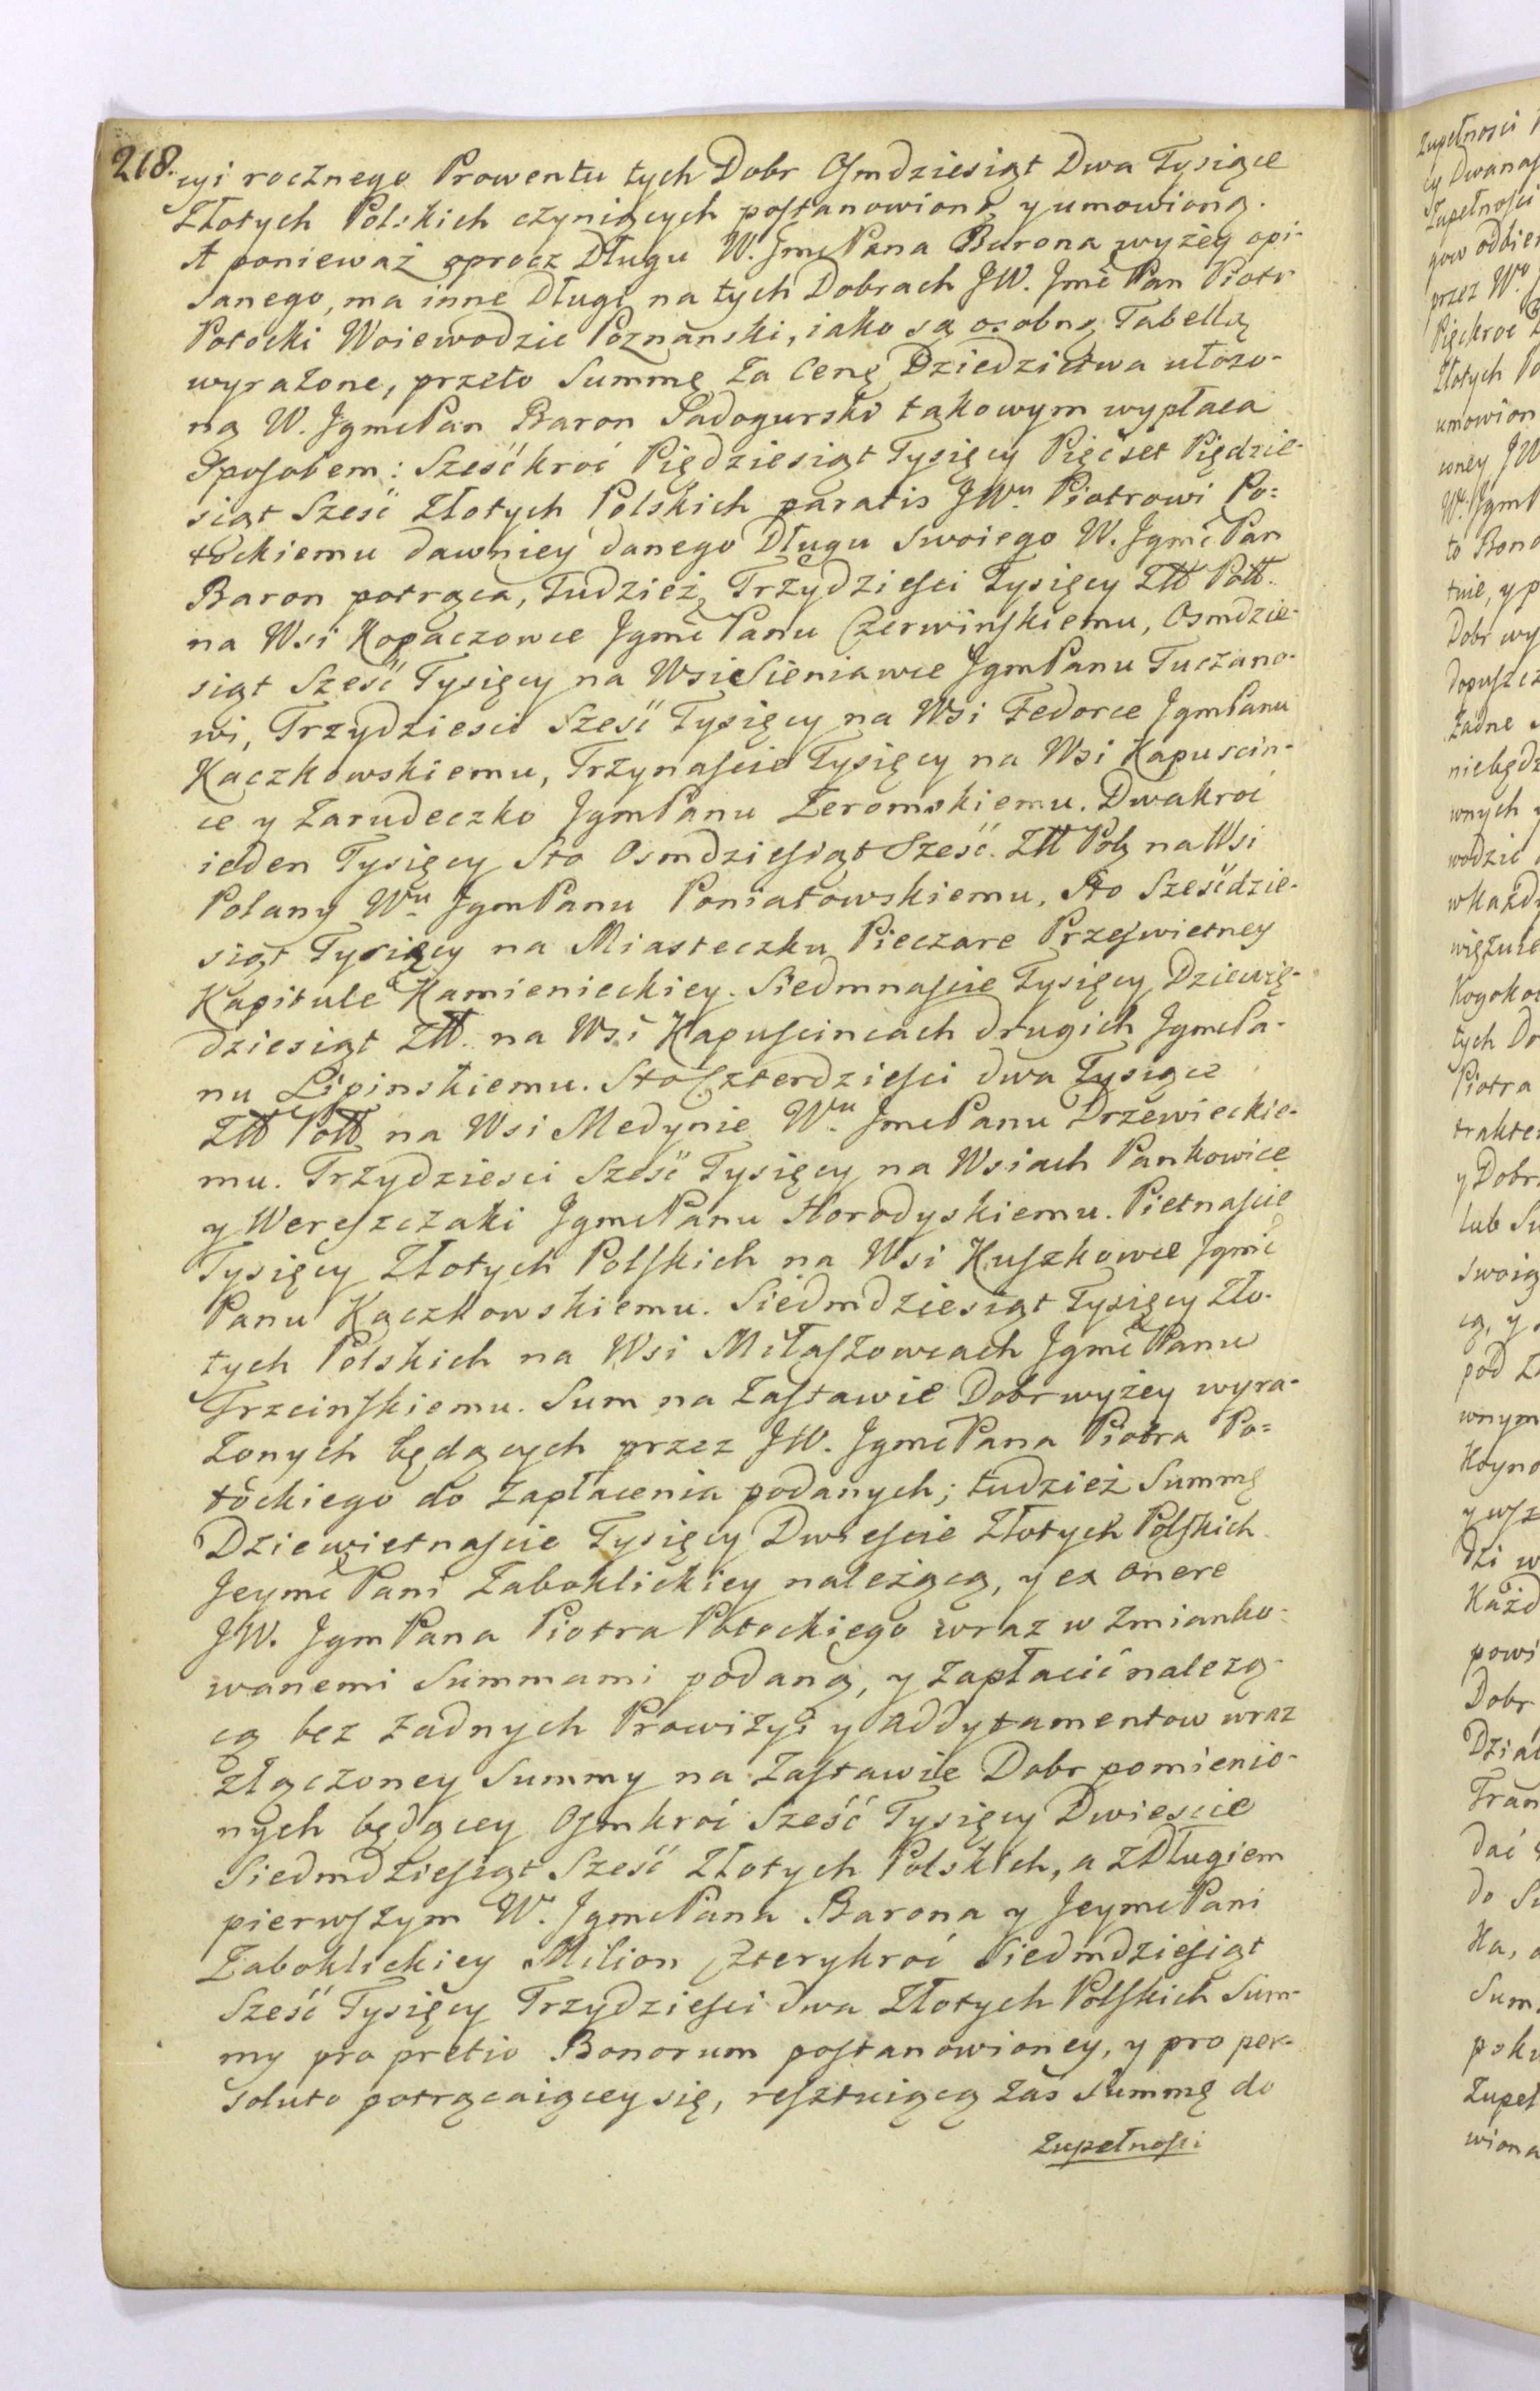 218.
cyi rocznego Prowentu tych Dobr Osmdziesiąt Dwa Tysiące
Złotych Polskich czyniących postanowioną y umowioną.
A ponieważ oprocz Długu W. Jmc Pana Barona wyżey opi-
sanego, ma inne Długi na tych Dobrach JW. Jmć Pan Piotr
Potocki Woiewodzic Poznanski, iako są osobną Tabellą
wyrażone, przeto Summę za Cenę Dziedzictwa ułożo-
ną W. JgmcPan Baron Sadogurski takowym wypłaca
Sposobem: Sześćkroć Piędziesiąt Tysięcy Pięćset Piędzie-
siąt Sześć Złotych Polskich paratis JWu. Piotrowi Po=
tockiemu dawniey danego Długu swoiego W. Jgmć Pan
Baron potrąca, Tudzież, Trzydziesci Tysięcy Złł Poll.
na Wsi Kopaczowce Jgmć Panu Czerwinskiemu, Osmdzie-
siąt Sześć Tysięcy na Wsi Sieniawce JgmPanu Tuczano-
wi, Trzydziesci Sześć Tysięcy na Wsi Fedorce JgmPanu
Kaczkowskiemu, Trzynascie Tysięcy na Wsi Kapuscin-
ce y Zarudeczko JgmPanu Zeromskiemu. Dwakroć
ieden Tysięcy Sto Osmdziesiąt Sześć Złł Pol na Wsi
Polany Wu. JgmPanu Poniatowskiemu, Sto Sześćdzie-
siąt Tysięcy na Miasteczku Pieczare Przeswietney
Kapitule Kamienieckiey. Siedmnascie Tysięcy Dziewię-
dziesiąt Złł. na Wsi Kapuscincach drugich JgmcPa-
nu Lipinskiemu. Sto Czterdziesci dwa Tysiące
Złł Poll na Wsi Medynie Wu. JmcPanu Drzewieckie-
mu. Trzydziesci Sześć Tysięcy na Wsiach Pankowice
y Wereszczaki JgmcPanu Horodyskiemu. Pietnascie
Tysięcy Złotych Polskich na Wsi Kuszkowce Jgmć
Panu Kączkowskiemu. Siedmdziesiąt Tysięcy Zło-
tych Polskich na Wsi Miłaszowcach Jgmć Panu
Trzcinskiemu. Sum na Zastawie Dobr wyżey wyra-
żonych będących przez JW. JgmćPana Piotra Po=
tockiego do Zapłacenia podanych; tudzież Summę
Dziewietnascie Tysięcy Dwiescie Złotych Polskich
Jeymć Pani Zabokłickiey należącą, y ex onere
JW. JgmPana Piotra Potockiego wraz w zmianko-
wanemi Summami podaną, y Zapłacić należą-
cą bez żadnych Prowizyi y addytamentow wraz
złączoney Summy na Zastawie Dobr pomienio-
nych będącey Osmkroć Sześć Tysięcy Dwiescie
Siedmdziesiąt Sześć Złotych Polskich, a z Długiem
pierwszym W. JgmcPana Barona y JeymcPani
Zabokłickiey Milion Czterykroć Siedmdziesiąt
Sześć Tysięcy Trzydziesci dwa Złotych Polskich Sum-
my pro pretio Bonorum postanowioney, y pro per-
soluto potrącaiącey się, resztuiącą zas Summę do
Zupełnosci